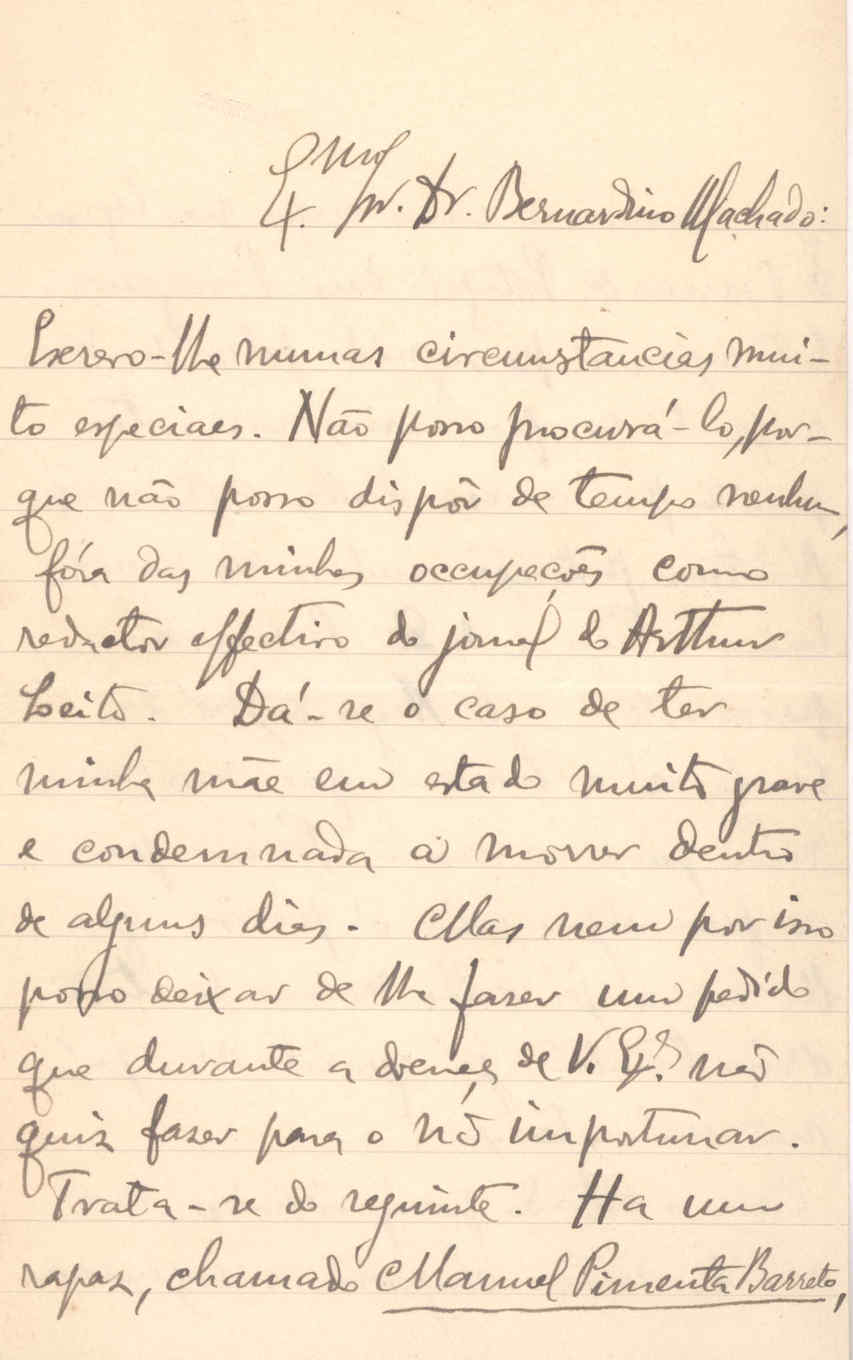 Exmo Snr. Dr. Bernardino Machado:
Escrevo-lhe numas circumstancias mui-
to especiaes. Não posso procurá-lo, por-
que não posso dispôr de tempo nenhum,
fóra das minhas occupações como
redactor effectivo do jornal do Arthur
Leitão. Dá-se o caso de ter
minha mãe em estado muito grave
e condemnada a morrer dentro
de alguns dias. Mas nem por isso
posso deixar de lhe fazer um pedido
que durante a doença de V. Ex.ª não
quiz fazer para o não importunar.
Trata-se do seguinte. Ha um
rapaz, chamado Manuel Pimenta Barreto,